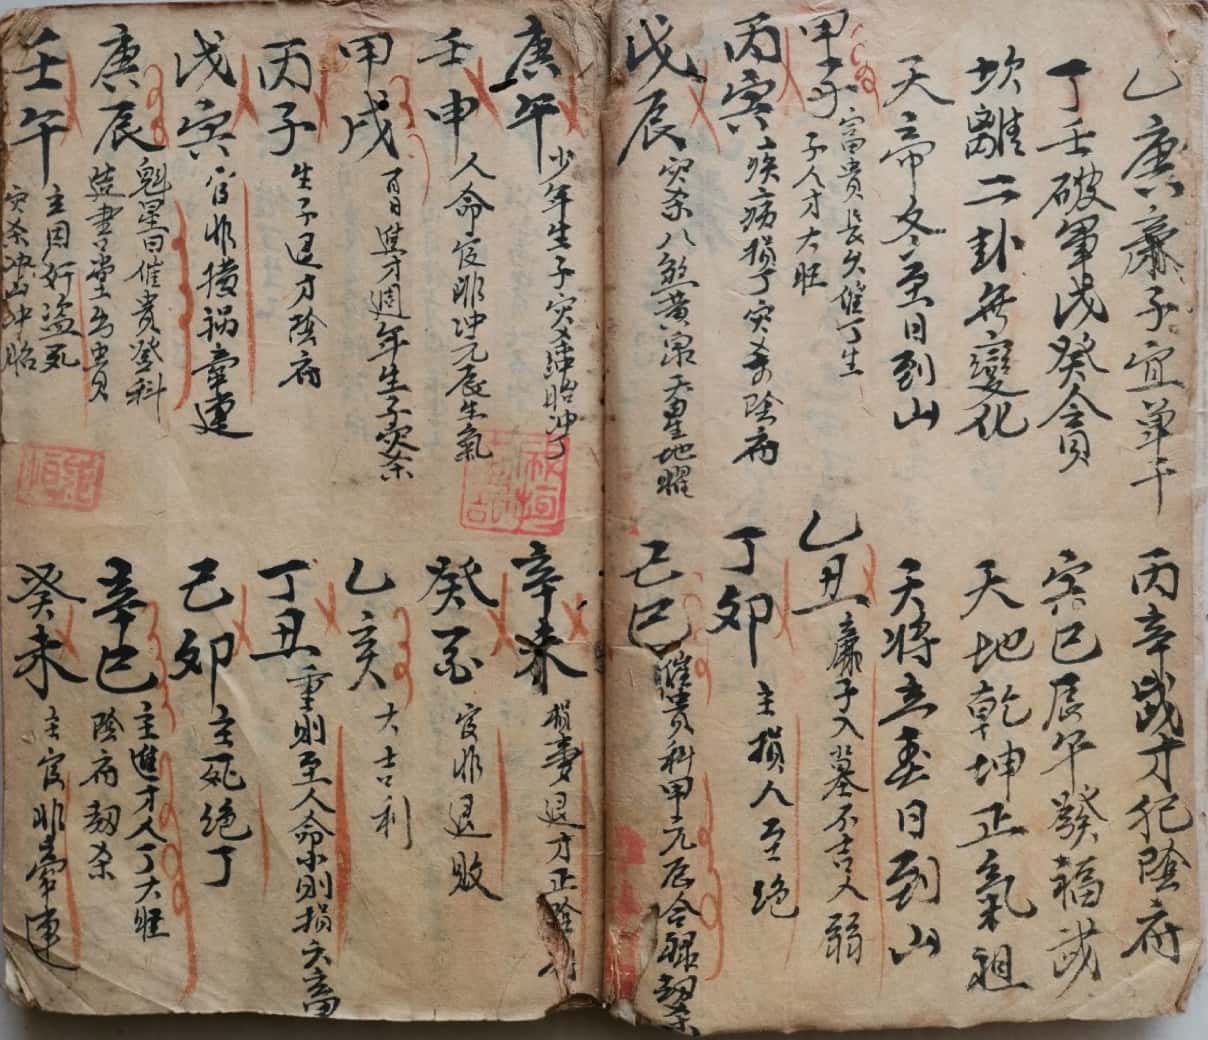 乙庚廉子宜單千
丙辛或才犯陰府
丁壬破軍戊癸貪
寅巳辰午發福或
坎離二卦無變化
天地乾坤正氣祖
天帝冬至日到山
天將立春日到山
甲子 富貴長久催丁生
子人才大旺
乙丑 廉子入墓不吉又弱
丙寅 疾病損丁灾 陰府
丁卯 主損人至絶
戊辰 灾杀八煞黄泉天星地曜
己巳 催貴科甲元辰合 刼杀
庚午 少年生子灾 冲胎冲丁
辛未 損妻退才正陰府
壬申 人命官非冲元辰生氣
癸酉 官非退敗
甲戌 百日進才週年生子灾杀
乙亥 大吉利
丙子 生子退才陰府
丁丑 重則至人命小則損六畜
戊寅 官非横祸牽連
己卯 主 絶丁
庚辰 魁星日催貴登科
造書堂出貴
辛巳 主進才人丁大旺
陰府刼杀
壬午 主因奸盗死
灾杀冲山冲胎
癸未 主官非牽連